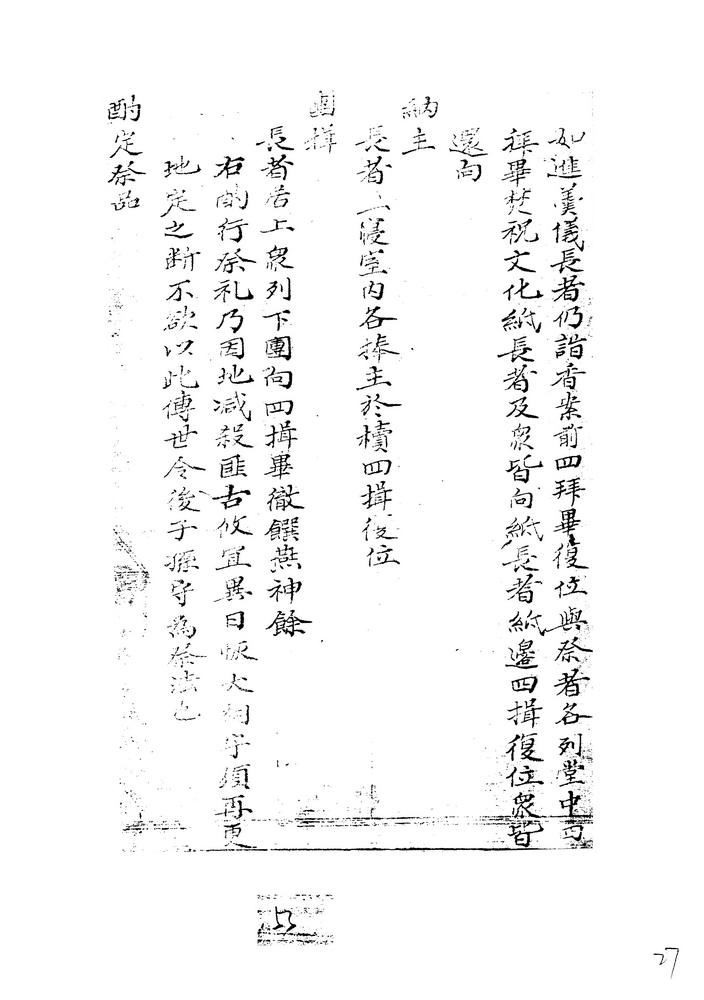 如進羹儀長者仍詣香案前四拜畢復位與祭者各列堂中四
拜畢焚祝文化紙長者及衆皆向紙長者紙邊四揖復位衆皆
還向
納主
長者入寢室内各捧主於櫝四揖復位
團揖
長者居上衆列下團向四揖畢徹饌燕神餘
右酌行祭礼乃因地减殺匪古攸宜異日恢大祠宇須再更
地定之断不欲以此傳世令後子孫守為祭法也
酌定祭品
53
27